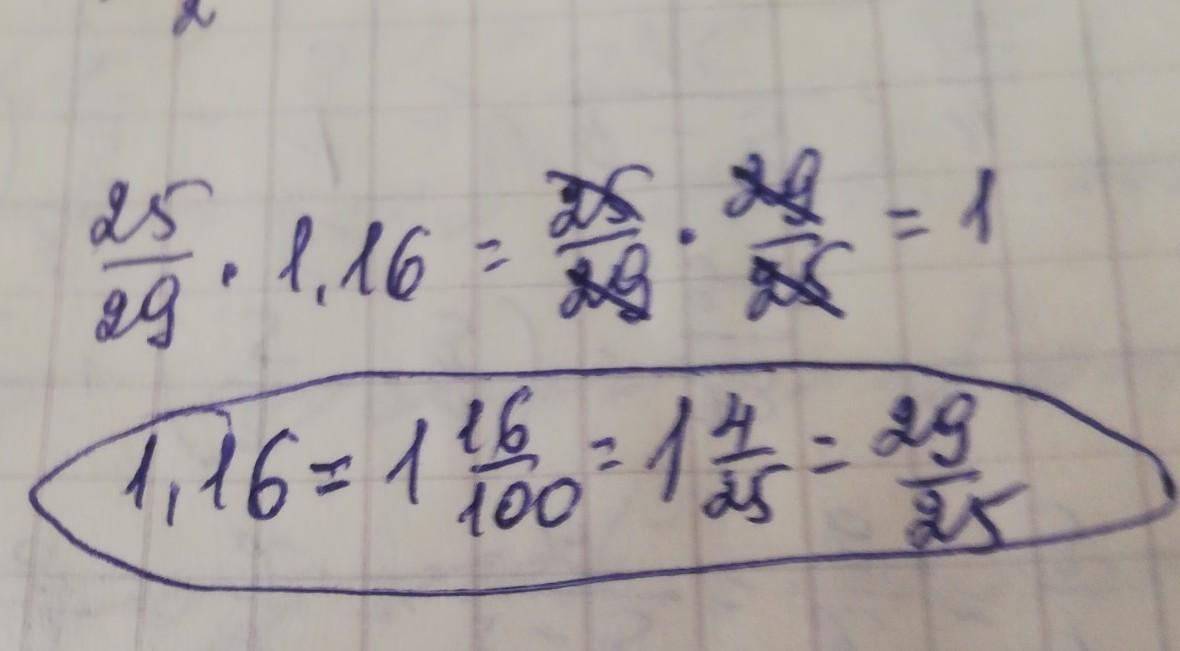 2
25/29 · 1,16 = 25/29 · 29/25 = 1
1,16 = 1 16/100 = 1 4/25 = 29/25